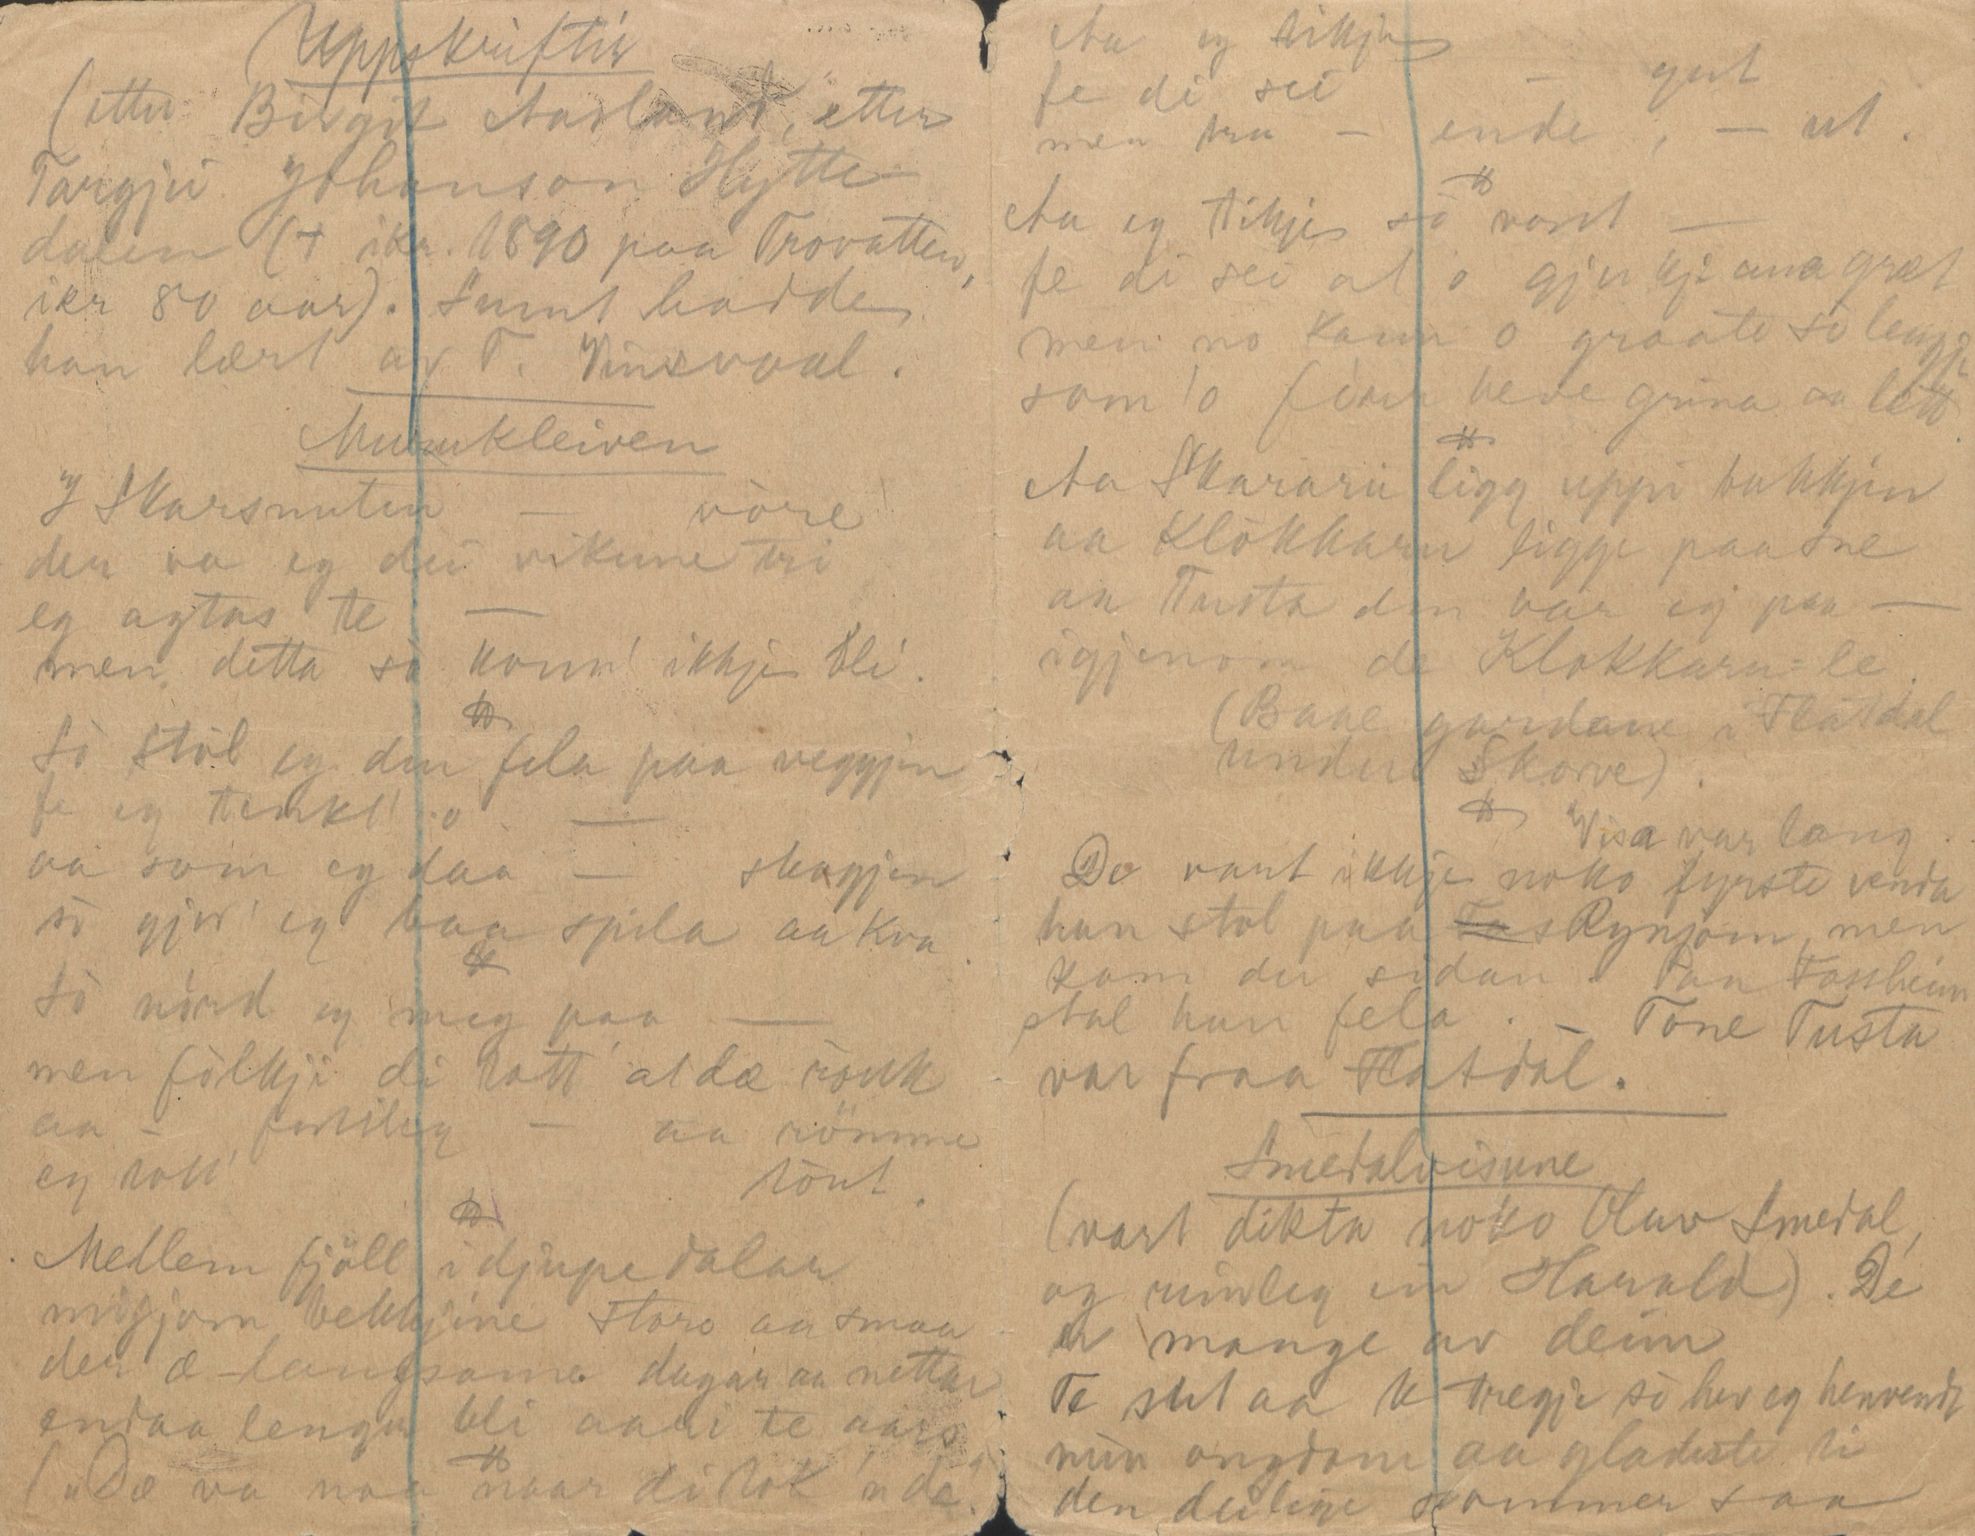 Uppskriftir
(etter Birgit Aasland, etter
Targjei Johanson Hytte-
dalen († ikr. 1890 paa Trovatten,
ikr 80 aar). Sumt hadde
han lært av T. Vinsvaal.
Munkleiven
I Skarsnuten — vòre
der va eg dei vikune tri
eg agtas te —
men detta so konn' ikkje bli.
So stòl eg den fela paa veggjen
fe eg tenkt' o —
va som eg daa — skogjen
so gjer' eg baa spila aa kva
So nörd eg meg paa —
men fòlkji di tott' at dæ rouk
aa — farleg — aa römme
eg tott' tònt.
Mellem fjöll i djupe dalar
migjom bekkjine store aa smaa
der æ langsame dagar aa nettar
endaa lengur bli aari te aars
("Dæ va naa naar di tok 'n de".
Aa eg tikje
fe di sei — gut
men tru — ende, — ut.
Aa eg tikje so vondt —
fe di sei at o gjer kji ana græt
men no kann o graate so lengje
som 'o fixur heve grina aa lett
Aa Skararii ligg uppi bakkjen
aa Klòkkaru ligge paa sne
aa Tusta den var eg paa —
igjenom de Klokkaru-le.
(Baae gardane i Flatdal
under Skorve).
Visa var lang.
De vart ikkje noko fyrste venda
han stòl paa Rynjom, men
kom der sidan. Paa Fossheim
stal han fela. — Tone Tusta
var fraa Flatdal.
Smedalvisune
(vart dikta noko Oluv Smedal,
og rimleg ein Harald). De
er mange av deim
Te sut aa te tregje so hev eg henvendt
min ongdom aa gladeste ti
den deilige sommer saa